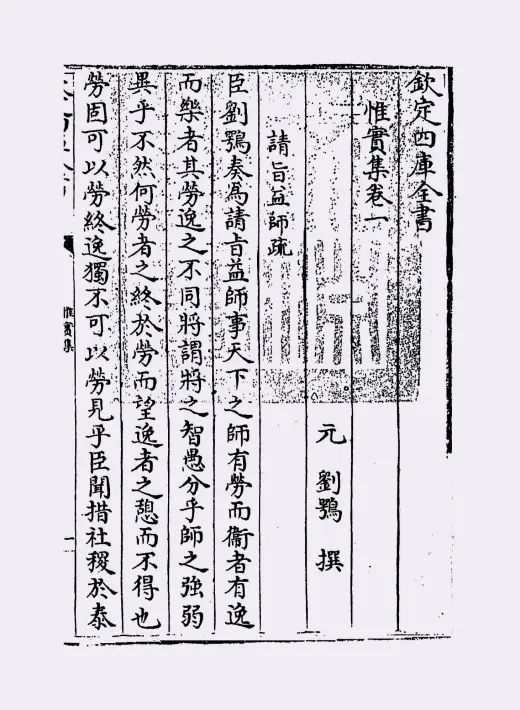 欽定四庫全書
惟實集卷一
元 劉鶚 撰
請旨益師疏
臣劉鶚奏為請旨益師事天下之師有勞而衞者有逸
而樂者其勞逸之不同將謂將之智愚分乎師之強弱
異乎不然何勞者之終於勞而望逸者之憩而不得也
勞固可以勞終逸獨不可以勞見乎臣聞措社稷於泰
惟實集
一